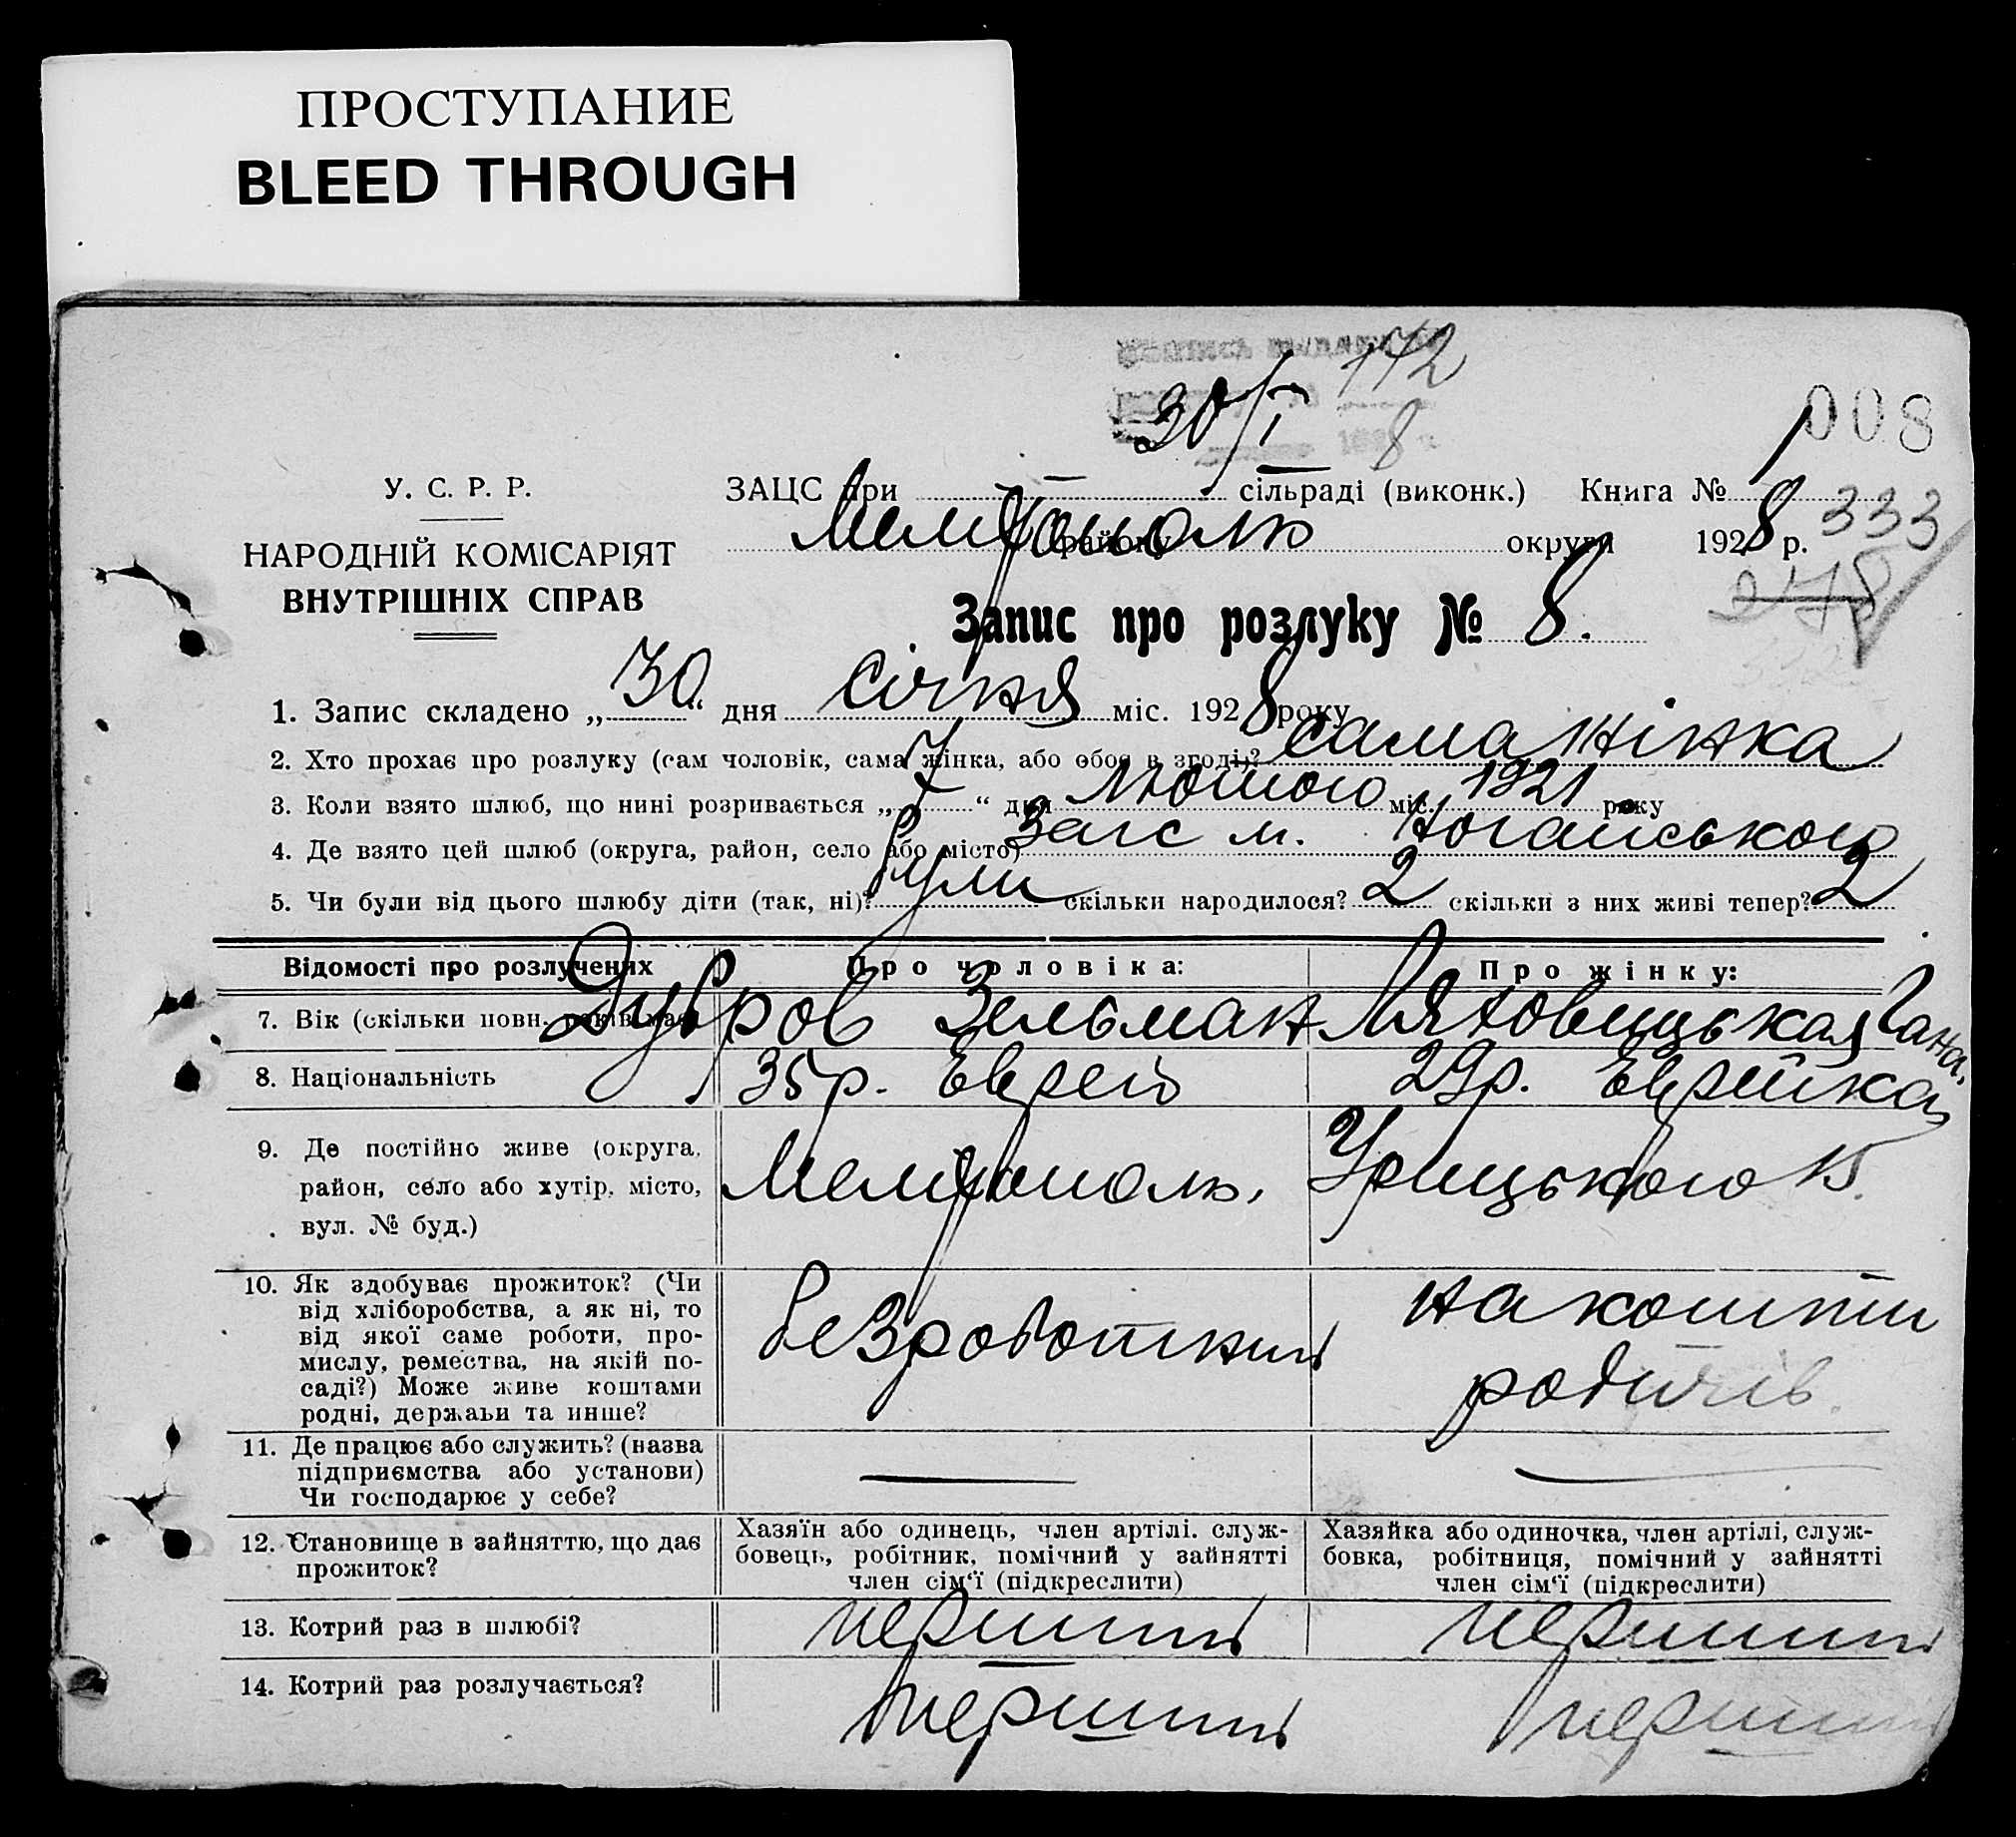 ПРОСТУПАНИЕ
BLEED THROUGH
172
30/I
8
008
У. С. Р. Р.
ЗАЦС при сільраді (виконк.) Книга № 1
333
НАРОДНІЙ КОМІСАРІЯТ
Мелітополь району округи 1928 р.
278
ВНУТРІШНІХ СПРАВ
Запис про розлуку № 8.
1. Запис складено „30“ дня Січня міс. 1928 року
2. Хто прохає про розлуку (сам чоловік, сама жінка, або обоє в згоді)? сама жінка
3. Коли взято шлюб, що нині розривається „7“ дня Лютого міс. 1921 року
4. Де взято цей шлюб (округа, район, село або місто) Загс м. Ногайського
5. Чи були від цього шлюбу діти (так, ні)? були скільки народилося? 2 скільки з них живі тепер? 2
Відомості про розлучених Про чоловіка: Про жінку:
Дубров Зельман Ляховицькая Гана.
7. Вік (скільки повн. років має)
8. Національність 35 р. Еврей 29 р. Еврейка
9. Де постійно живе (округа,
район, село або хутір, місто, Мелітополь, Урицького 15.
вул. № буд.)
10. Як здобуває прожиток? (Чи
від хліборобства, а як ні, то
від якої саме роботи, про-
мислу, ремества, на якій по-
саді?) Може живе коштами
родні, держави та инше?
безроботний на кошти
родичів.
11. Де працює або служить? (назва
підприємства або установи)
Чи господарює у себе?
12. Становище в зайняттю, що дає
прожиток?
Хазяїн або одинець, член артілі. служ-
бовець, робітник, помічний у зайнятті
член сім‘ї (підкреслити)
Хазяйка або одиночка, член артілі, служ-
бовка, робітниця, помічний у зайнятті
член сім‘ї (підкреслити)
13. Котрий раз в шлюбі? перший перший
14. Котрий раз розлучається? перший перший